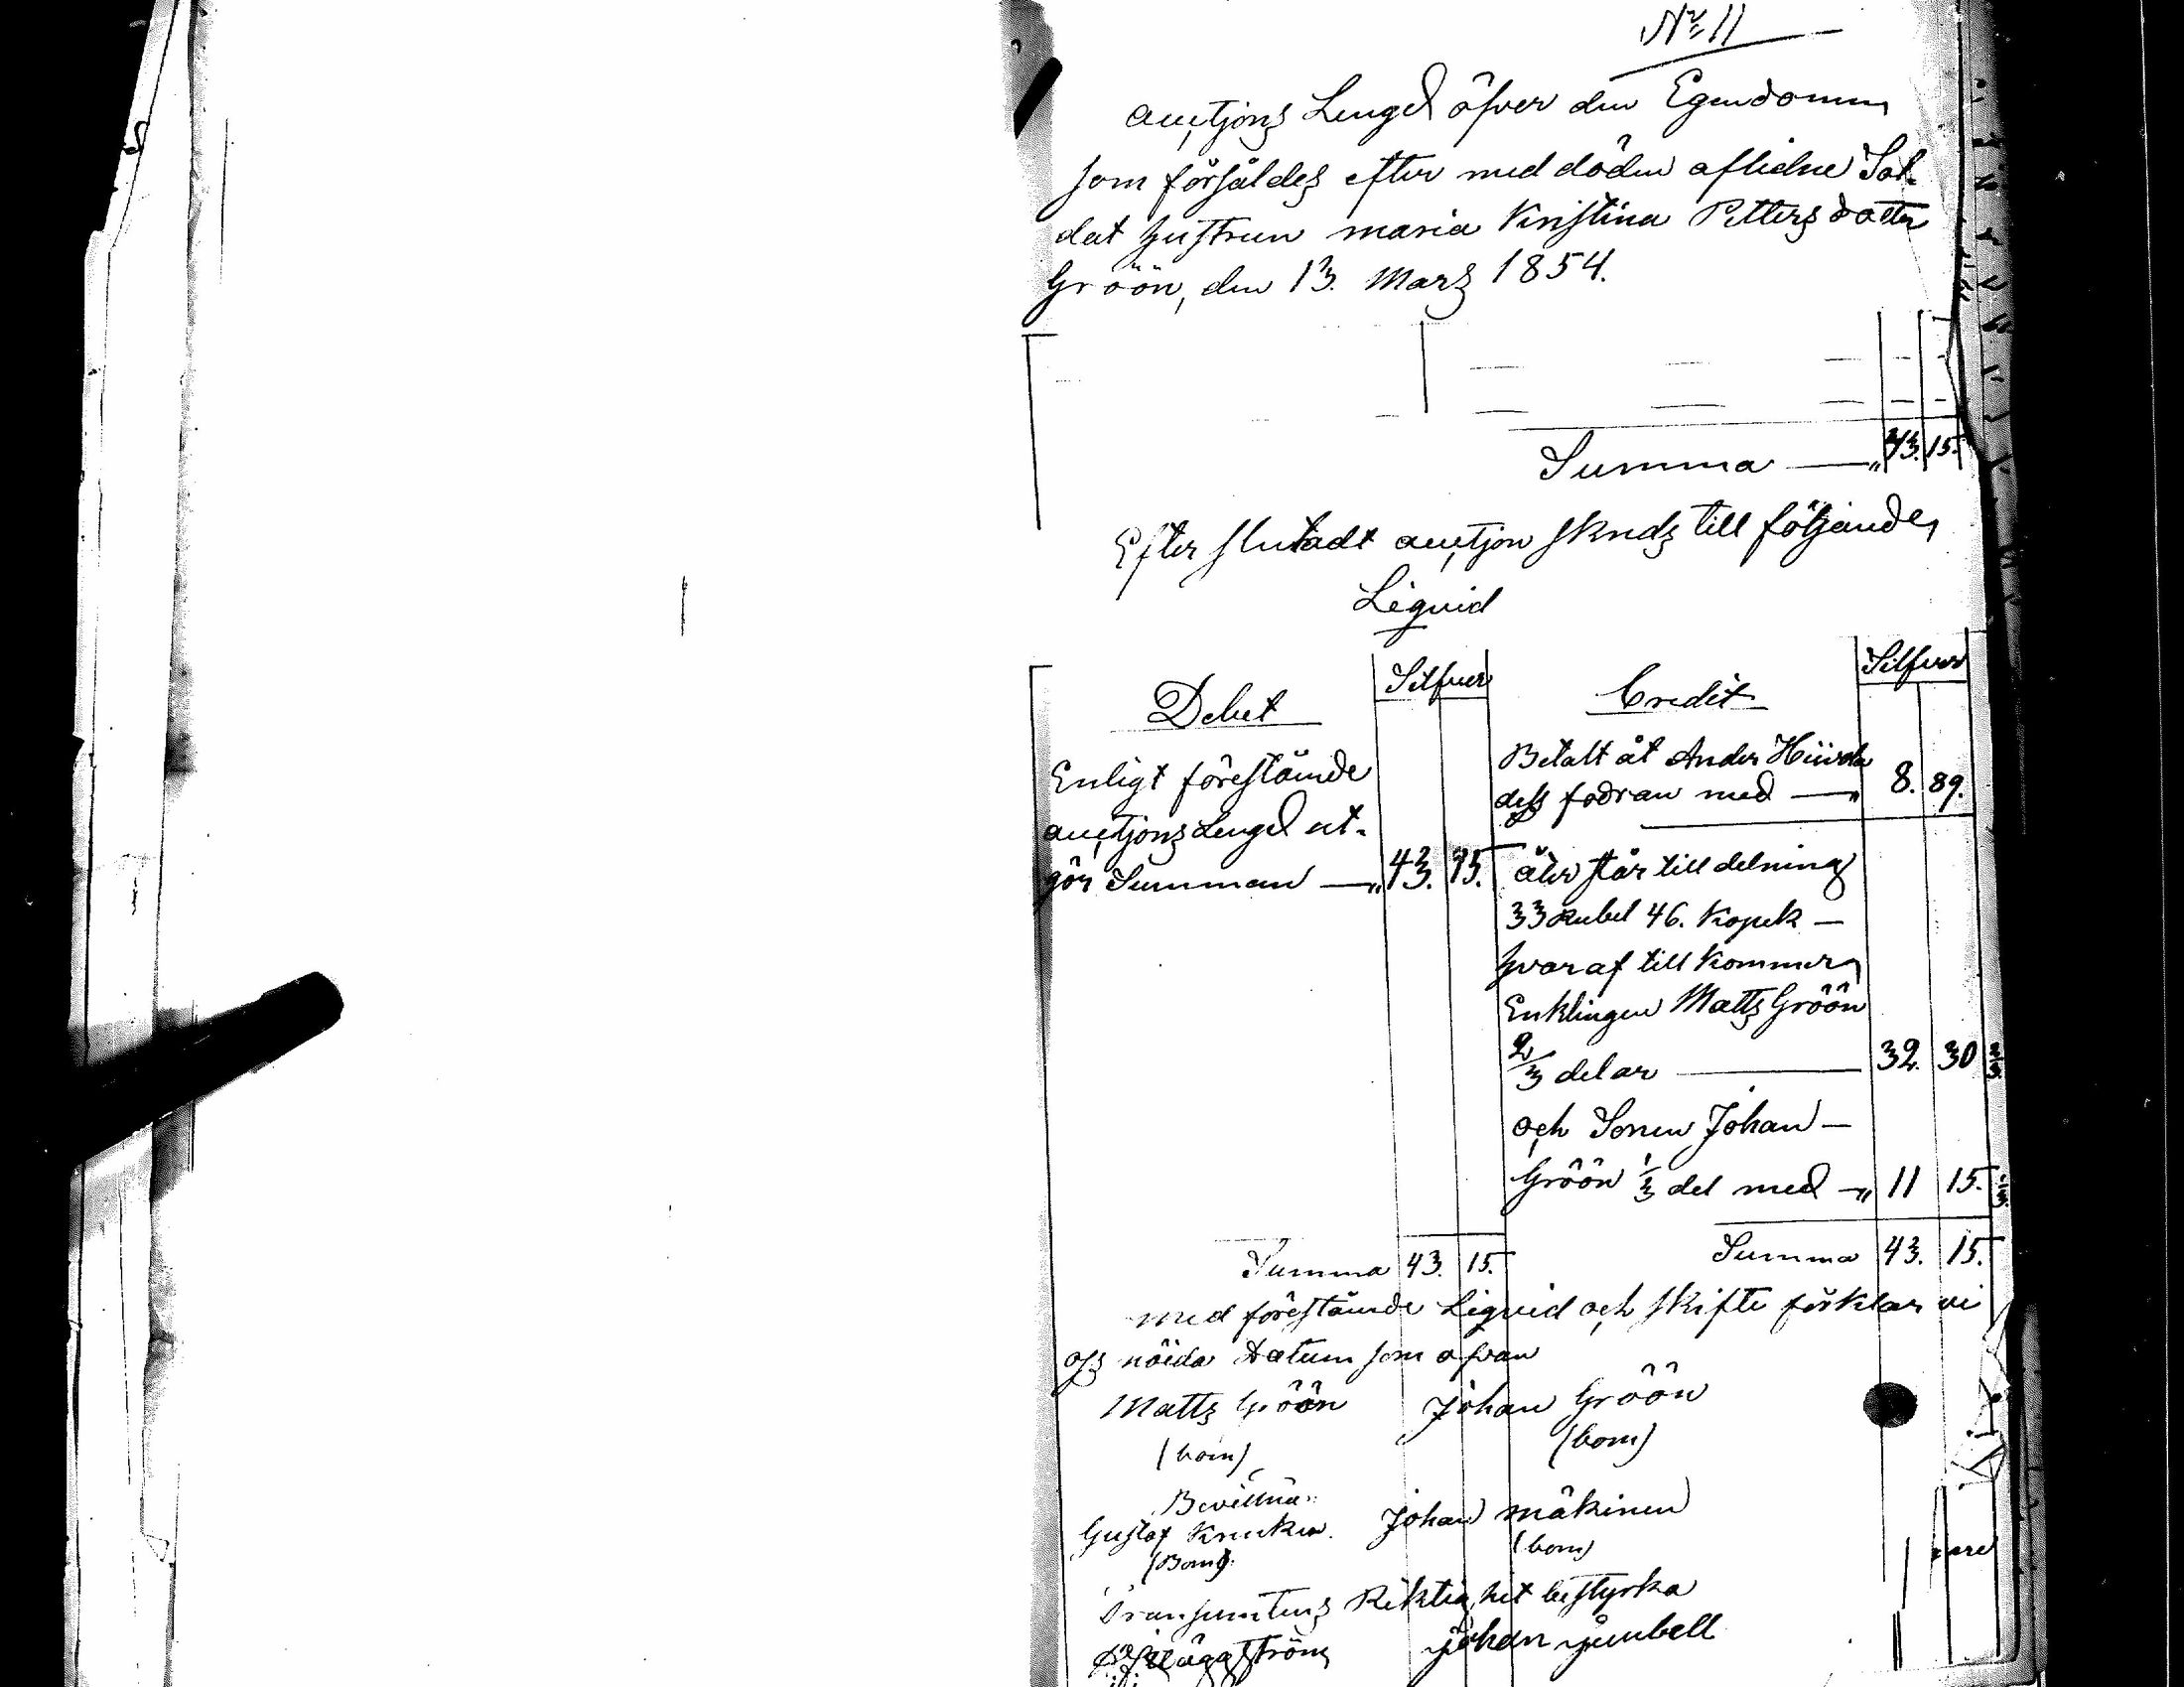 No 11
auctjons Lengd öfver den Egendomm
som försåldes efter med döden aflidne Sol-
dat hustrun maria Kristina Pettersdotter
Gröön, den 13. Mars 1854.
Summa — " 43. 15.
Efter slutadt auctjon skreds till följande
Liqvid
Debet Silfver Credit Silfver
Betalt åt Ander Hiirola
Enligt förestående
dess fodran med — " 8. 89.
auctjons Lengd ut-
gör Summan — " 43. 15.
åter står till delning
33 Rubel 46. Kopek —
hvaraf till kommer
Enklingen Matts Gröön
2/3 delar — 32. 30 2/3
och Sonen Johan —
Gröön 1/3 del med — " 11 15. 1/3
Summa 43. 15. Summa 43. 15.
med förestående Liqvid och skifte förklar vi
oss nöida Datum som ofvan
Matts Gröön Johan Gröön
(bom) (bom)
Bevittna:
Gustaf Johan mäkinen
(Bom) (bom)
Transumtens Riktighet bestyrka
Häggström Johan Ljunbell